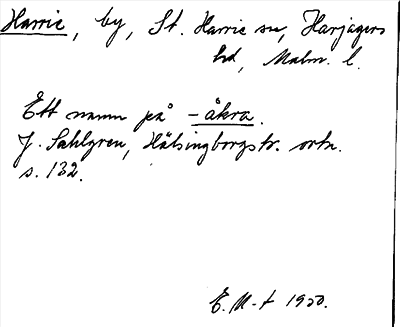 Harrie, by, St. Harrie sn, Harjagers
hd, Malm. l.
Ett namn på -åkra.
J. Sahlgren, Hälsingborgstr. ortn.
s. 132.
E. M-t 1950.